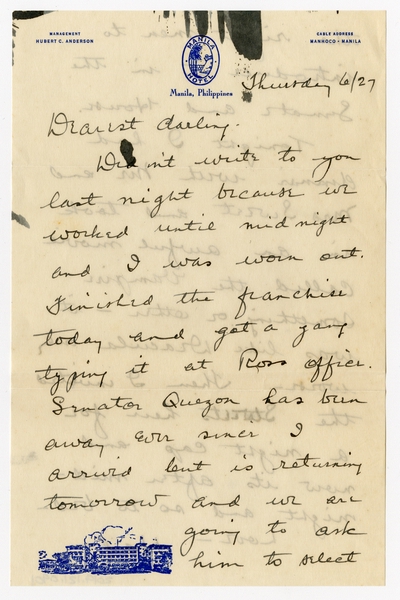 MANAGEMENT
HUBERT C. ANDERSON
MANILA
HOTEL
Manila, Philippines
CABLE ADDRESS
MANHOCO - MANILA
Thursday 6/27
Dearest darling.
Didn't write to you
last night because we
worked until midnight
and I was worn out.
Finished the franchise
today and got a gang
typing it at Ross office.
Senator Quezon has been
away ever since I
arrived but is returning
tomorrow and we are
going to ask
him to select